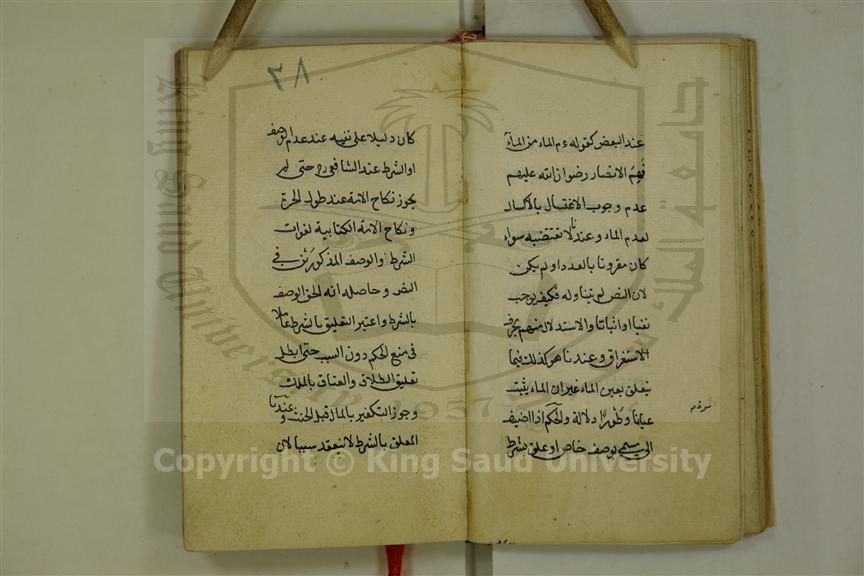 عند البعض كقوله ءم الماء من الماء
فهم الانصار رضوان الله عليهم
عدم وجوب الاغتسال بالاكسال
لعدم الماء وعندنا لا تقتضيه سواء
كان مقرونا بالعدد او لم يكن
لان النص لم يتناوله فكيف يوجب
نفيا او اثباتا والاستدلال منهم بحرف
الاستغراق وعندنا هو كذلك فيما
يتعلق بعين الماء غير ان الماء يثبت
عيانا وطورا دلالة والحكم اذا اضيف
الى مسمى بوصف خاص او علق بشرط
٣٨
كان دليلا على نفيه عند عدم الوصف
او الشرط عند الشافعى رح حتى لم
يجوز نكاح الامة عند طول الحرة
ونكاح الامة الكتابية لفوات
الشرط والوصف المذكورين فى
النص وحاصله انه الحق الوصف
بالشرط واعتبر التعليق بالشرط عاملا
فى منع الحكم دون السبب حتى ابطل
تعليق الطلاق والعتاق بالملك
وجوز التكفير بالمال قبل الحنث وعندنا
المعلق بالشرط لا ينعقد سببا لان
Copyright © King Saud University
جامعة الملك
King Saud University
1957